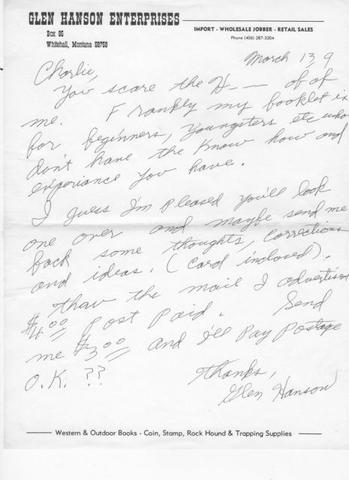 GLEN HANSON ENTERPRISES
Box 85
Whitehall, Montana 59759
IMPORT - WHOLESALE JOBBER - RETAIL SALES
Phone (406) 287-3304
March 13, 9
Charlie,
You scare the H--- of of
me. Frankly my booklet is
for beginners, youngsters etc who
don't have the know how and
experience you have.
I guess I'm pleased you'll look
one over and maybe send me
back some thoughts, corrections
and ideas. (Card inclosed).
thaw the mail I advertise
$4.00 post paid. Send
me $3.00 and I'll pay postage
O.K. ??
thanks,
Glen Hanson
Western & Outdoor Books - Coin, Stamp, Rock Hound & Trapping Supplies